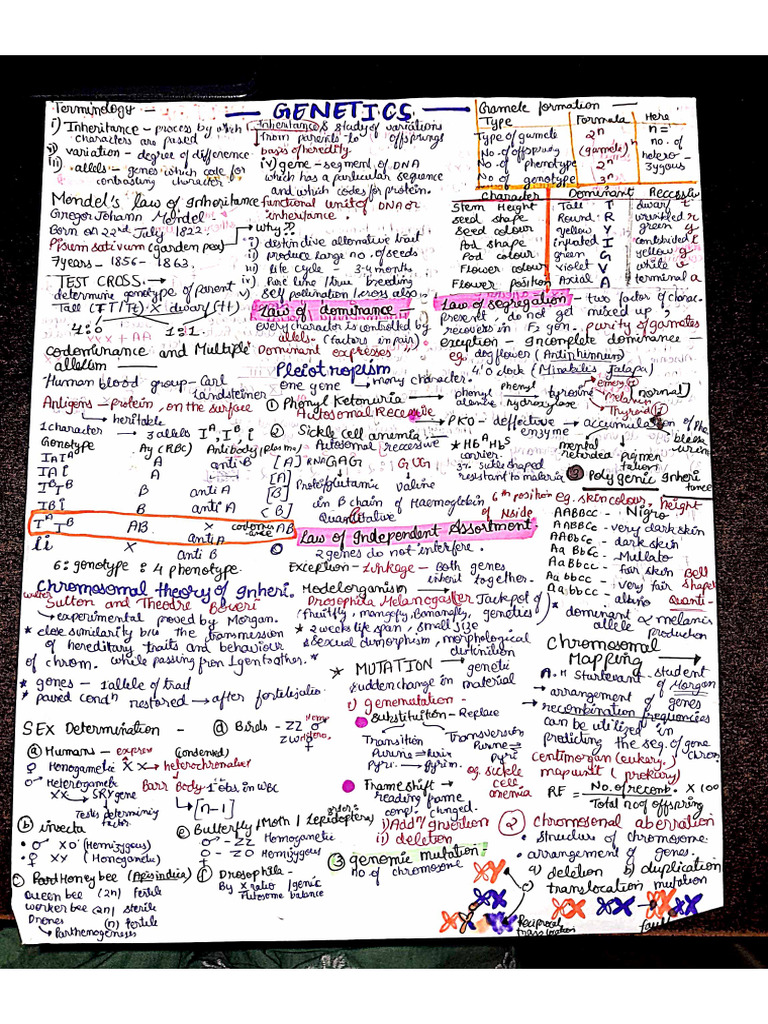 GENETICS
Terminology -
i) Inheritance - proces by which
characters are passed
ii) variation - degree of difference
iii) allels - genes which code for
contrasting character
Inheritance is study of variations
from parents to offsprings
bases of heredity
iv) gene - segment of DNA
which has a particular sequence
and which codes for protein.
functional unit of DNA or
inheritance.
Gamete formation -
Type Formula Here
Type of gamete 2ⁿ n =
No. of offspring (gamete)ⁿ no. of
No. of phenotype 2ⁿ hetero-
No. of genotype 3ⁿ zygous
Mendel's law of Inheritance
Gregor Johann Mendel
Born on 22nd July 1822
Pisum sativum (garden pea)
7 years - 1856 - 1863.
why??
i) distinctive alternative trait
ii) produce large no. of seeds
iii) life cycle - 3-4 months
iv) Pure line / true breeding
v) self pollination / cross also
Character Dominant Recessiv
Stem Height Tall T dwarf t
Seed shape Round R wrinkled r
Seed colour yellow Y green y
Pod shape inflated I i
Pod colour green G yellow g
Flower colour violet V while v
Flower position Axial A terminal a
TEST CROSS. →
determine genotype of parent
Tall (TT/Tt) X dwarf (tt)
4:0 1:1.
Law of dominance -
every character is controlled by
allels - (factors in pair)
Dominant expresses
Law of segregation - two factor of charac-
present, do not get mixed up,
recovers in F2 gen. purity of gametes
exception - Incomplete dominance -
eg. dog flower (Antirrhinum)
4'O clock (Mirabilis Jalapa)
codominance and Multiple
allelism -
Human blood group - Carl
Landsteiner
Antigens - protein, on the surface
→ heritable
1 character → 3 allels Iᴬ, Iᴮ, i
Genotype Ag (RBC) Antibody (plasma)
IᴬIᴬ A
Iᴬi A anti B [A]
IᴮIᴮ B anti A [B]
Iᴮi B anti A
IᴬIᴮ AB X AB
ii X anti A
anti B
6: genotype : 4 phenotype.
Pleiotropism
one gene → many character.
① Phenyl Ketonuria →
Autosomal Recessive
phenyl alanine
Phenyl hydroxylase
tyrosine
Melanin
[normal]
PKU - deffective enzyme → accumulation of Phe
mental
② Sickle cell anemia -
Autosomal recessive
HbᴬHbˢ
carrier.
sickle shaped
resistant to malaria
GAG GUG
valine
in B chain of Haemoglobin 6th position
③ Polygenic Inheri
tance
eg. skin colour, height
AABBCC - Nigro
AABBCc - very dark skin
- dark skin
- Mullato
- fair skin
- very fair
aabbcc - albino
Bell
shape
Quanti-
* dominant allele ∝ melanin
production
Law of Independent Assortment
2 genes do not interfere.
Exception - Linkage - Both genes
inherit together.
Chromosomal theory of Inheri.
Sutton and Theodre Boveri
→ experimental proved by Morgan.
* close similarity b/w the transmission
of hereditary traits and behaviour
of chrom. while passing from 1 gen to other.
* genes - 1 allele of trait
Model organism →
Drosophila Melanogaster (Jackpot of
genetics)
* 2 weeks life span, small size
* sexual dimorphism, morphological
* MUTATION → genetic
sudden change in material
i) gene mutation -
Substitution - Replace
Transition Transversion
eg. sickle
cell
anemia
Frame shift →
reading frame
compl. changed.
i) Addn / insertion
ii) deletion
Chromosomal
Mapping →
A.H Sturtevant - student
of Morgan
→ arrangement of genes
→ recombination frequencies
can be utilized in
predicting the seq. of gene
chrom.
centimorgan (eukary.)
map unit (prokary)
RF = No. of recomb. X 100
Total no of offspring
② chromosomal aberration
• Structure of chromosome.
• arrangement of genes.
a) deletion b) duplication
c) translocation mutation
Reciprocal
translocation
③ genomic mutation -
no of chromosome
SEX Determination -
ⓐ Humans -
♀ Homogametic XX → heterochromatin
(condensed)
Barr Body - 1 obs. in WBC
[n-1]
♂ Heterogametic
XY → SRY gene
Testis determining
factor
ⓑ insecta
• ♂ XO (Hemizygous)
• ♀ XX (Homogametic)
ⓒ Honey bee (Apis indica)
Queen bee (2n) fertile
worker bee (2n) sterile
Drones (n) fertile
→ Parthenogenesis
ⓓ Birds - ZZ ♂
ZW ♀
ⓔ Butterfly (Moth / Lepidoptera) order
♂ - ZZ Homogametic
♀ - ZO Hemizygous
ⓕ Drosophila -
By X ratio / genic
Autosome balance